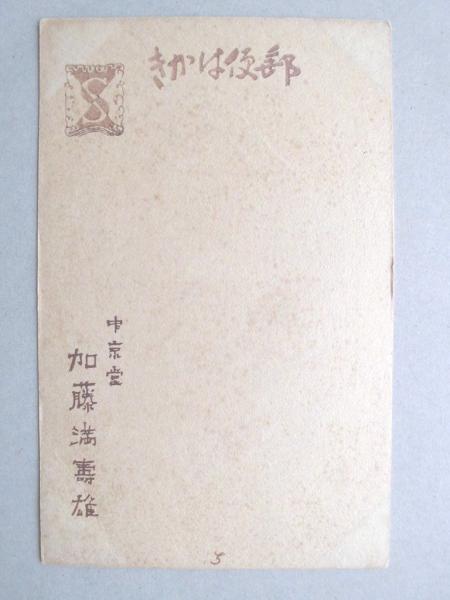 郵便はかき
S
中京堂
加藤満壽雄
5